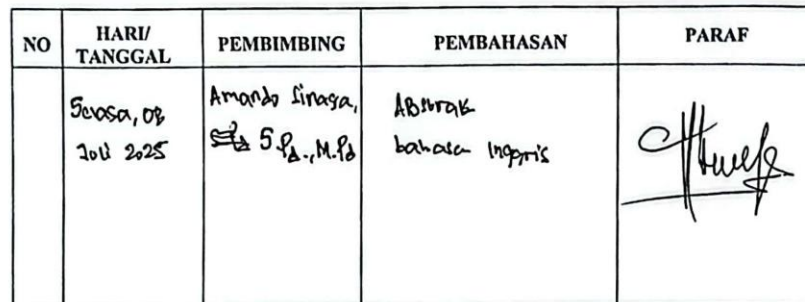 NO
HARI/
TANGGAL
PEMBIMBING
PEMBAHASAN
PARAF
Selasa, 08
Juli 2025
Amando Sinaga,
S.Pd., M.Pd
Abstrak
bahasa Inggris